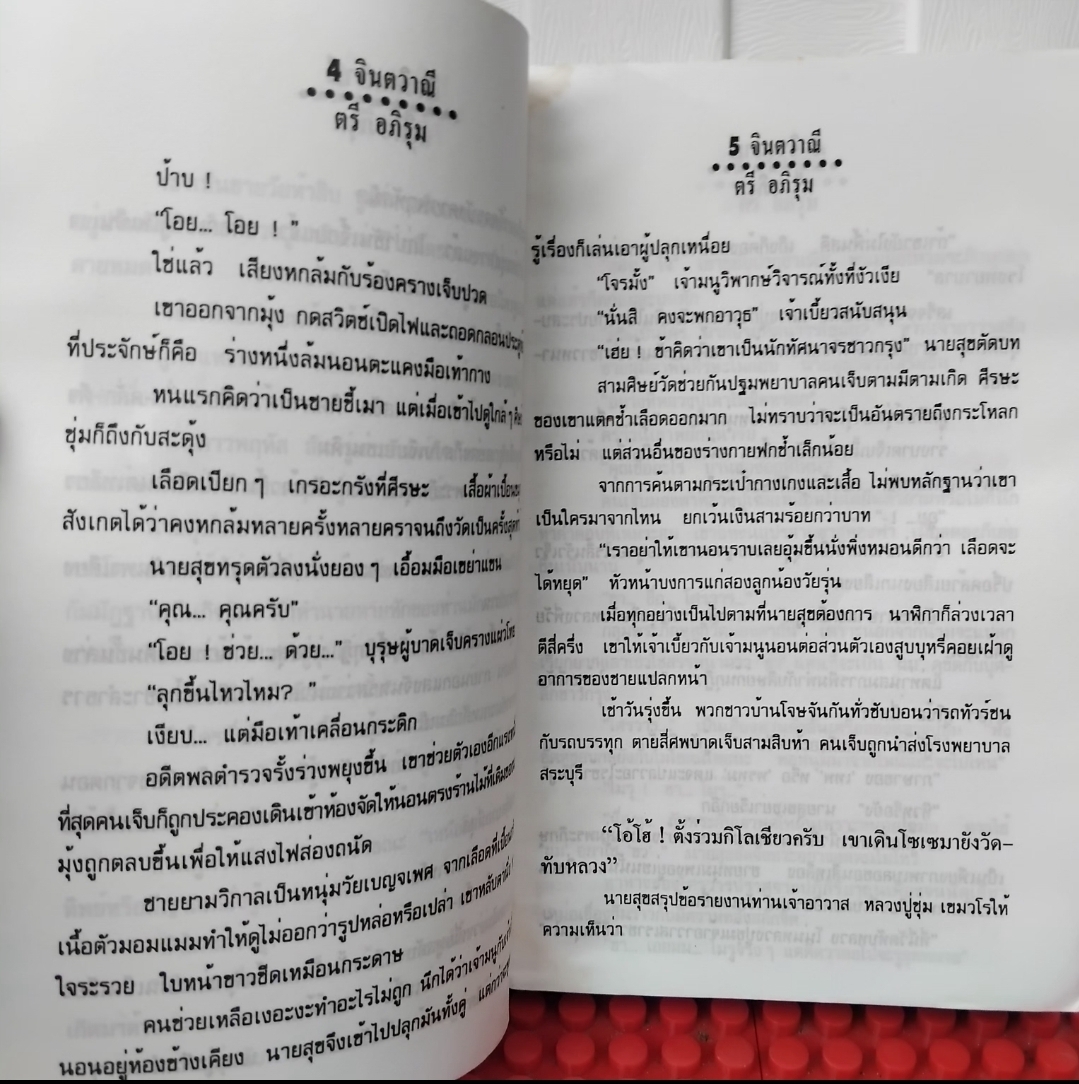 4 จินตวาณี
ตรี อภิรุม
ป้าบ !
“โอย... โอย ! ”
ใช่แล้ว เสียงหกล้มกับร้องครางเจ็บปวด
เขาออกจากมุ้ง กดสวิตช์เปิดไฟและถอดกลอนประตู
ที่ประจักษ์ก็คือ ร่างหนึ่งล้มนอนตะแคงมือเท้ากาง
หนแรกคิดว่าเป็นชายขี้เมา แต่เมื่อเข้าไปดูใกล้ ๆ
ชุ่มก็ถึงกับสะดุ้ง
เลือดเปียก ๆ เกรอะกรังที่ศีรษะ เสื้อผ้าเปื้อน
สังเกตได้ว่าคงหกล้มหลายครั้งหลายคราจนถึงวัดเป็นครั้งสุดท้
นายสุขทรุดตัวลงนั่งยอง ๆ เอื้อมมือเขย่าแขน
“คุณ... คุณครับ”
“โอย ! ช่วย... ด้วย...” บุรุษผู้บาดเจ็บครางแผ่วโหย
“ลุกขึ้นไหวไหม? ”
เงียบ... แต่มือเท้าเคลื่อนกระดิก
อดีตพลตำรวจรั้งร่างพยุงขึ้น เขาช่วยตัวเองอีกแรงหนึ่
ที่สุดคนเจ็บก็ถูกประคองเดินเข้าห้องจัดให้นอนตรงร้านไม้ที่เดิมของ
มุ้งถูกตลบขึ้นเพื่อให้แสงไฟส่องถนัด
ชายยามวิกาลเป็นหนุ่มวัยเบญจเพศ จากเลือดที่เปื้อน
เนื้อตัวมอมแมมทำให้ดูไม่ออกว่ารูปหล่อหรือเปล่า เขาหลับตา
ใจระรวย ใบหน้าขาวซีดเหมือนกระดาษ
คนช่วยเหลือเงอะงะทำอะไรไม่ถูก นึกได้ว่าเจ้ามนูกับ
นอนอยู่ห้องข้างเคียง นายสุขจึงเข้าไปปลุกมันทั้งคู่ แต่กว่า
5 จินตวาณี
ตรี อภิรุม
รู้เรื่องก็เล่นเอาผู้ปลุกเหนื่อย
“โจรมั้ง” เจ้ามนูวิพากษ์วิจารณ์ทั้งที่งัวเงีย
“นั่นสิ คงจะพกอาวุธ” เจ้าเบี้ยวสนับสนุน
“เฮ่ย ! ข้าคิดว่าเขาเป็นนักทัศนาจรชาวกรุง” นายสุขตัดบท
สามศิษย์วัดช่วยกันปฐมพยาบาลคนเจ็บตามมีตามเกิด ศีรษะ
ของเขาแตกช้ำเลือดออกมาก ไม่ทราบว่าจะเป็นอันตรายถึงกระโหลก
หรือไม่ แต่ส่วนอื่นของร่างกายฟกช้ำเล็กน้อย
จากการค้นตามกระเป๋ากางเกงและเสื้อ ไม่พบหลักฐานว่าเขา
เป็นใครมาจากไหน ยกเว้นเงินสามร้อยกว่าบาท
“เราอย่าให้เขานอนราบเลยอุ้มขึ้นนั่งพิงหมอนดีกว่า เลือดจะ
ได้หยุด” หัวหน้าบงการแก่สองลูกน้องวัยรุ่น
เมื่อทุกอย่างเป็นไปตามที่นายสุขต้องการ นาฬิกาก็ล่วงเวลา
ตีสี่ครึ่ง เขาให้เจ้าเบี้ยวกับเจ้ามนูนอนต่อส่วนตัวเองสูบบุหรี่คอยเฝ้าดู
อาการของชายแปลกหน้า
เช้าวันรุ่งขึ้น พวกชาวบ้านโจษจันกันทั่วซับบอนว่ารถทัวร์ชน
กับรถบรรทุก ตายสี่ศพบาดเจ็บสามสิบห้า คนเจ็บถูกนำส่งโรงพยาบาล
สระบุรี
“โอ้โฮ้ ! ตั้งร่วมกิโลเชียวครับ เขาเดินโซเซมายังวัด–
ทับหลวง”
นายสุขสรุปข้อรายงานท่านเจ้าอาวาส หลวงปู่ชุ่ม เขมวโรให้
ความเห็นว่า